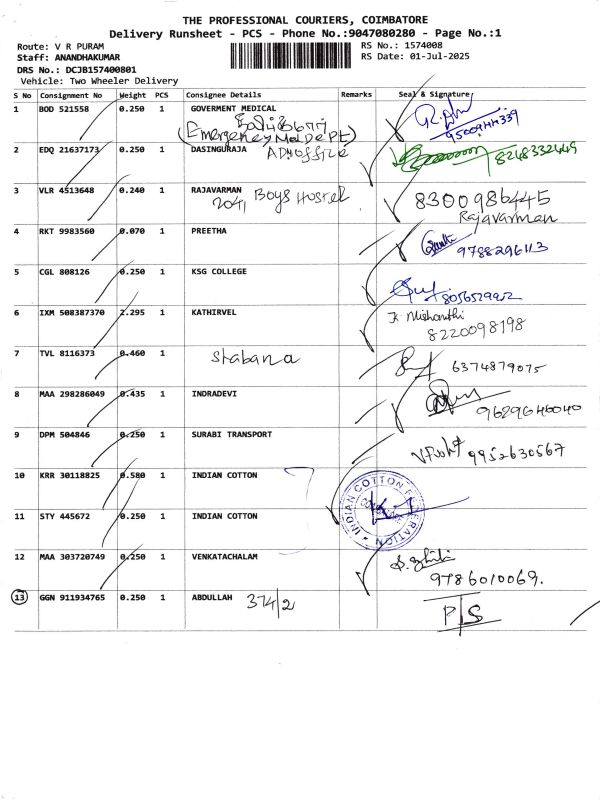 THE PROFESSIONAL COURIERS, COIMBATORE
Delivery Runsheet - PCS - Phone No.:9047080280 - Page No.:1
Route: V R PURAM
RS No.: 1574008
Staff: ANANDHAKUMAR
RS Date: 01-Jul-2025
DRS No.: DCJB157400801
Vehicle: Two Wheeler Delivery
S No Consignment No Weight PCS Consignee Details Remarks Seal & Signature
1 BOD 521558 0.250 1 GOVERMENT MEDICAL
(Emergency Med Dept) 9500944339
2 EDQ 21637173 0.250 1 DASINGURAJA ADM office 8248332449
3 VLR 4513648 0.240 1 RAJAVARMAN Boys Hostel 8300986445
2041 Rajavarman
4 RKT 9983560 0.070 1 PREETHA 9788296113
5 CGL 808126 0.250 1 KSG COLLEGE
8056529922
6 IXM 508387370 2.295 1 KATHIRVEL K. Nishanthi
8220098198
7 TVL 8116373 0.460 1 Shabana 6374879075
8 MAA 298286049 0.435 1 INDRADEVI
9629646040
9 DPM 504846 0.250 1 SURABI TRANSPORT
9952630567
10 KRR 30118825 0.580 1 INDIAN COTTON
INDIAN COTTON FEDERATION
11 STY 445672 0.250 1 INDIAN COTTON
12 MAA 303720749 0.250 1 VENKATACHALAM
9786010069.
13 GGN 911934765 0.250 1 ABDULLAH 374/2
P/S